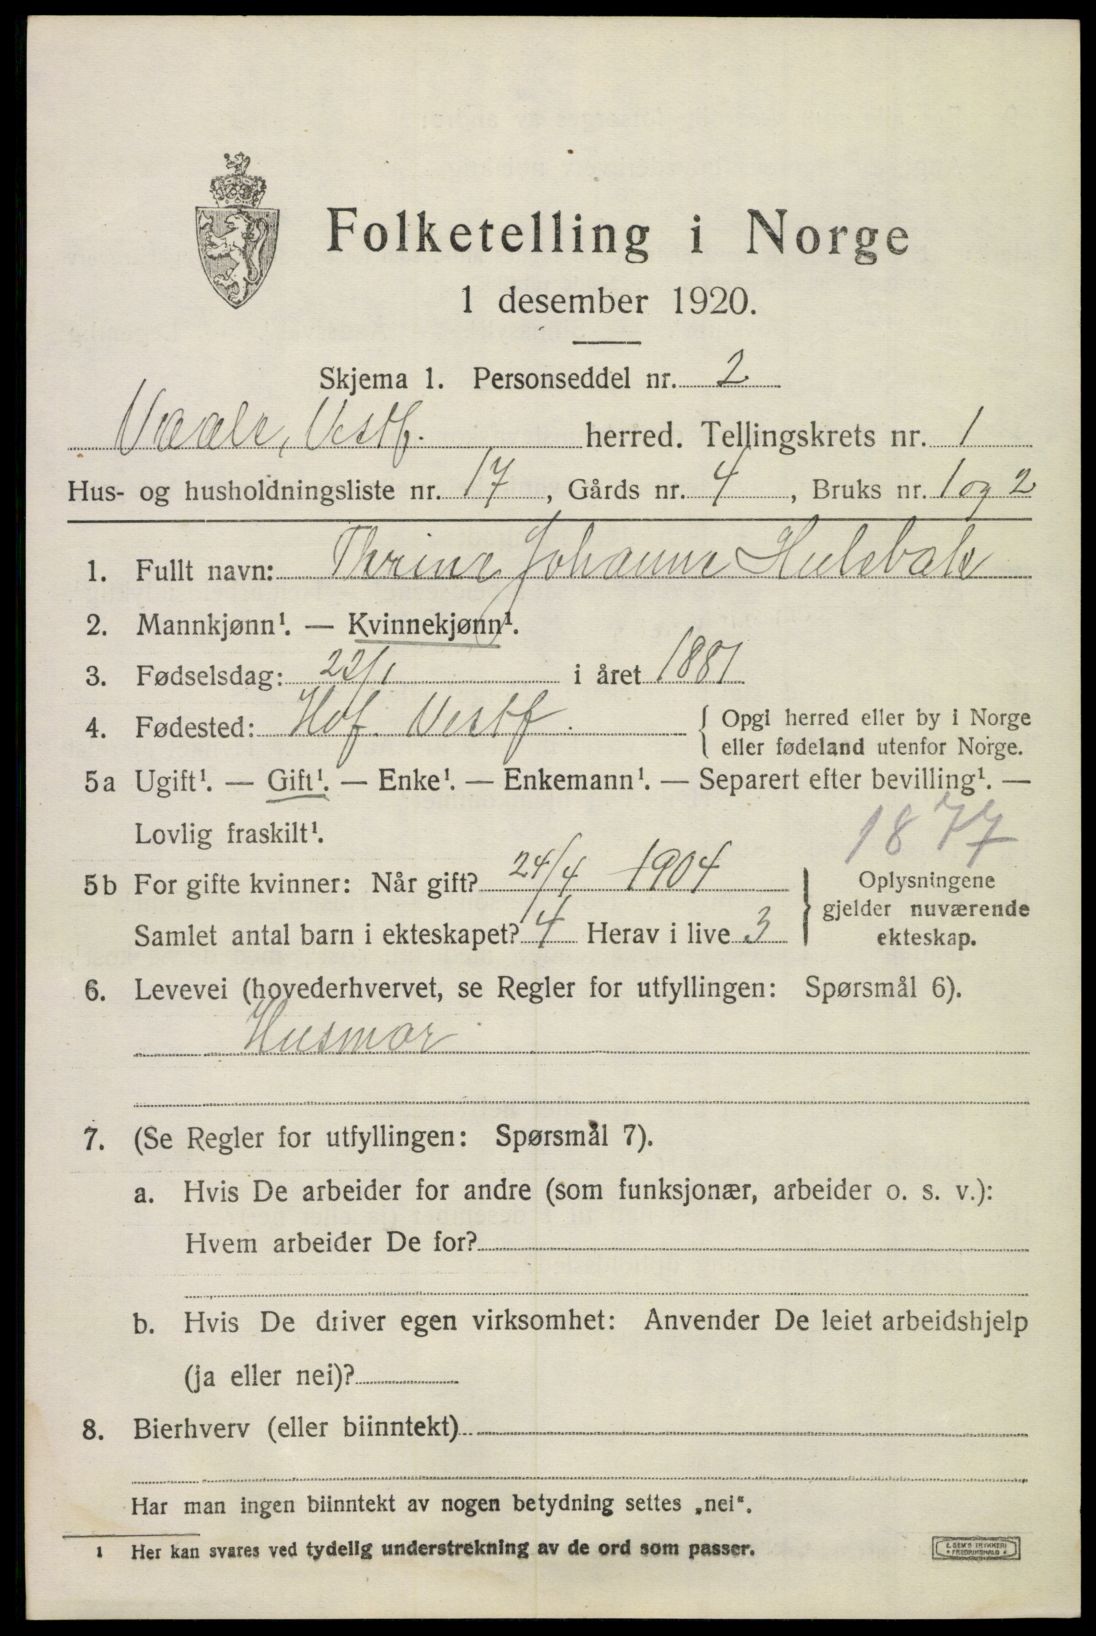 Folketelling i Norge
1 desember 1920.
Skjema 1. Personseddel nr. 2
Vaale, Vestf. herred. Tellingskrets nr. 1
Hus- og husholdningsliste nr. 17, Gårds nr. 4, Bruks nr. 1 og 2
1. Fullt navn: Thrine Johanne Hulebak
2. Mannkjønn¹. — Kvinnekjønn¹.
3. Fødselsdag: 22/1 i året 1881
4. Fødested: Hof. Vestf. { Opgi herred eller by i Norge
eller fødeland utenfor Norge.
5a Ugift¹. — Gift¹. — Enke¹. — Enkemann¹. — Separert efter bevilling¹. —
Lovlig fraskilt¹.
1877
5b For gifte kvinner: Når gift? 24/4 1904
Samlet antal barn i ekteskapet? 4 Herav i live 3
} Oplysningene
gjelder nuværende
ekteskap.
6. Levevei (hovederhvervet, se Regler for utfyllingen: Spørsmål 6).
Husmor
7. (Se Regler for utfyllingen: Spørsmål 7).
a. Hvis De arbeider for andre (som funksjonær, arbeider o. s. v.):
Hvem arbeider De for?
b. Hvis De driver egen virksomhet: Anvender De leiet arbeidshjelp
(ja eller nei)?
8. Bierhverv (eller biinntekt)
Har man ingen biinntekt av nogen betydning settes „nei“.
1 Her kan svares ved tydelig understrekning av de ord som passer.
E. SEM'S TRYKKERI
• FREDRIKSHALD •